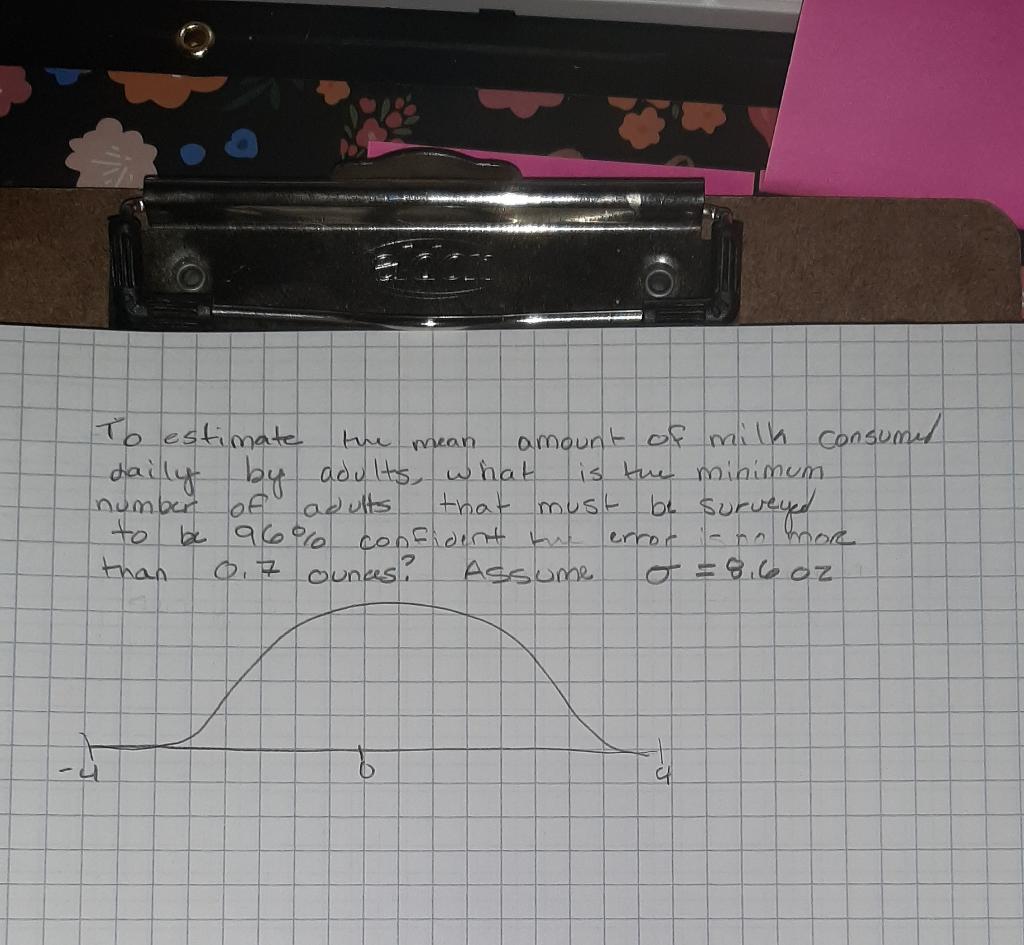 aldar
To estimate the mean amount of milk consumed
daily by adults, what is the minimum
number of adults that must be surveyed
to be 96% confident the error is no more
than 0.7 ounces? Assume σ = 8.6 oz
-4 0 4